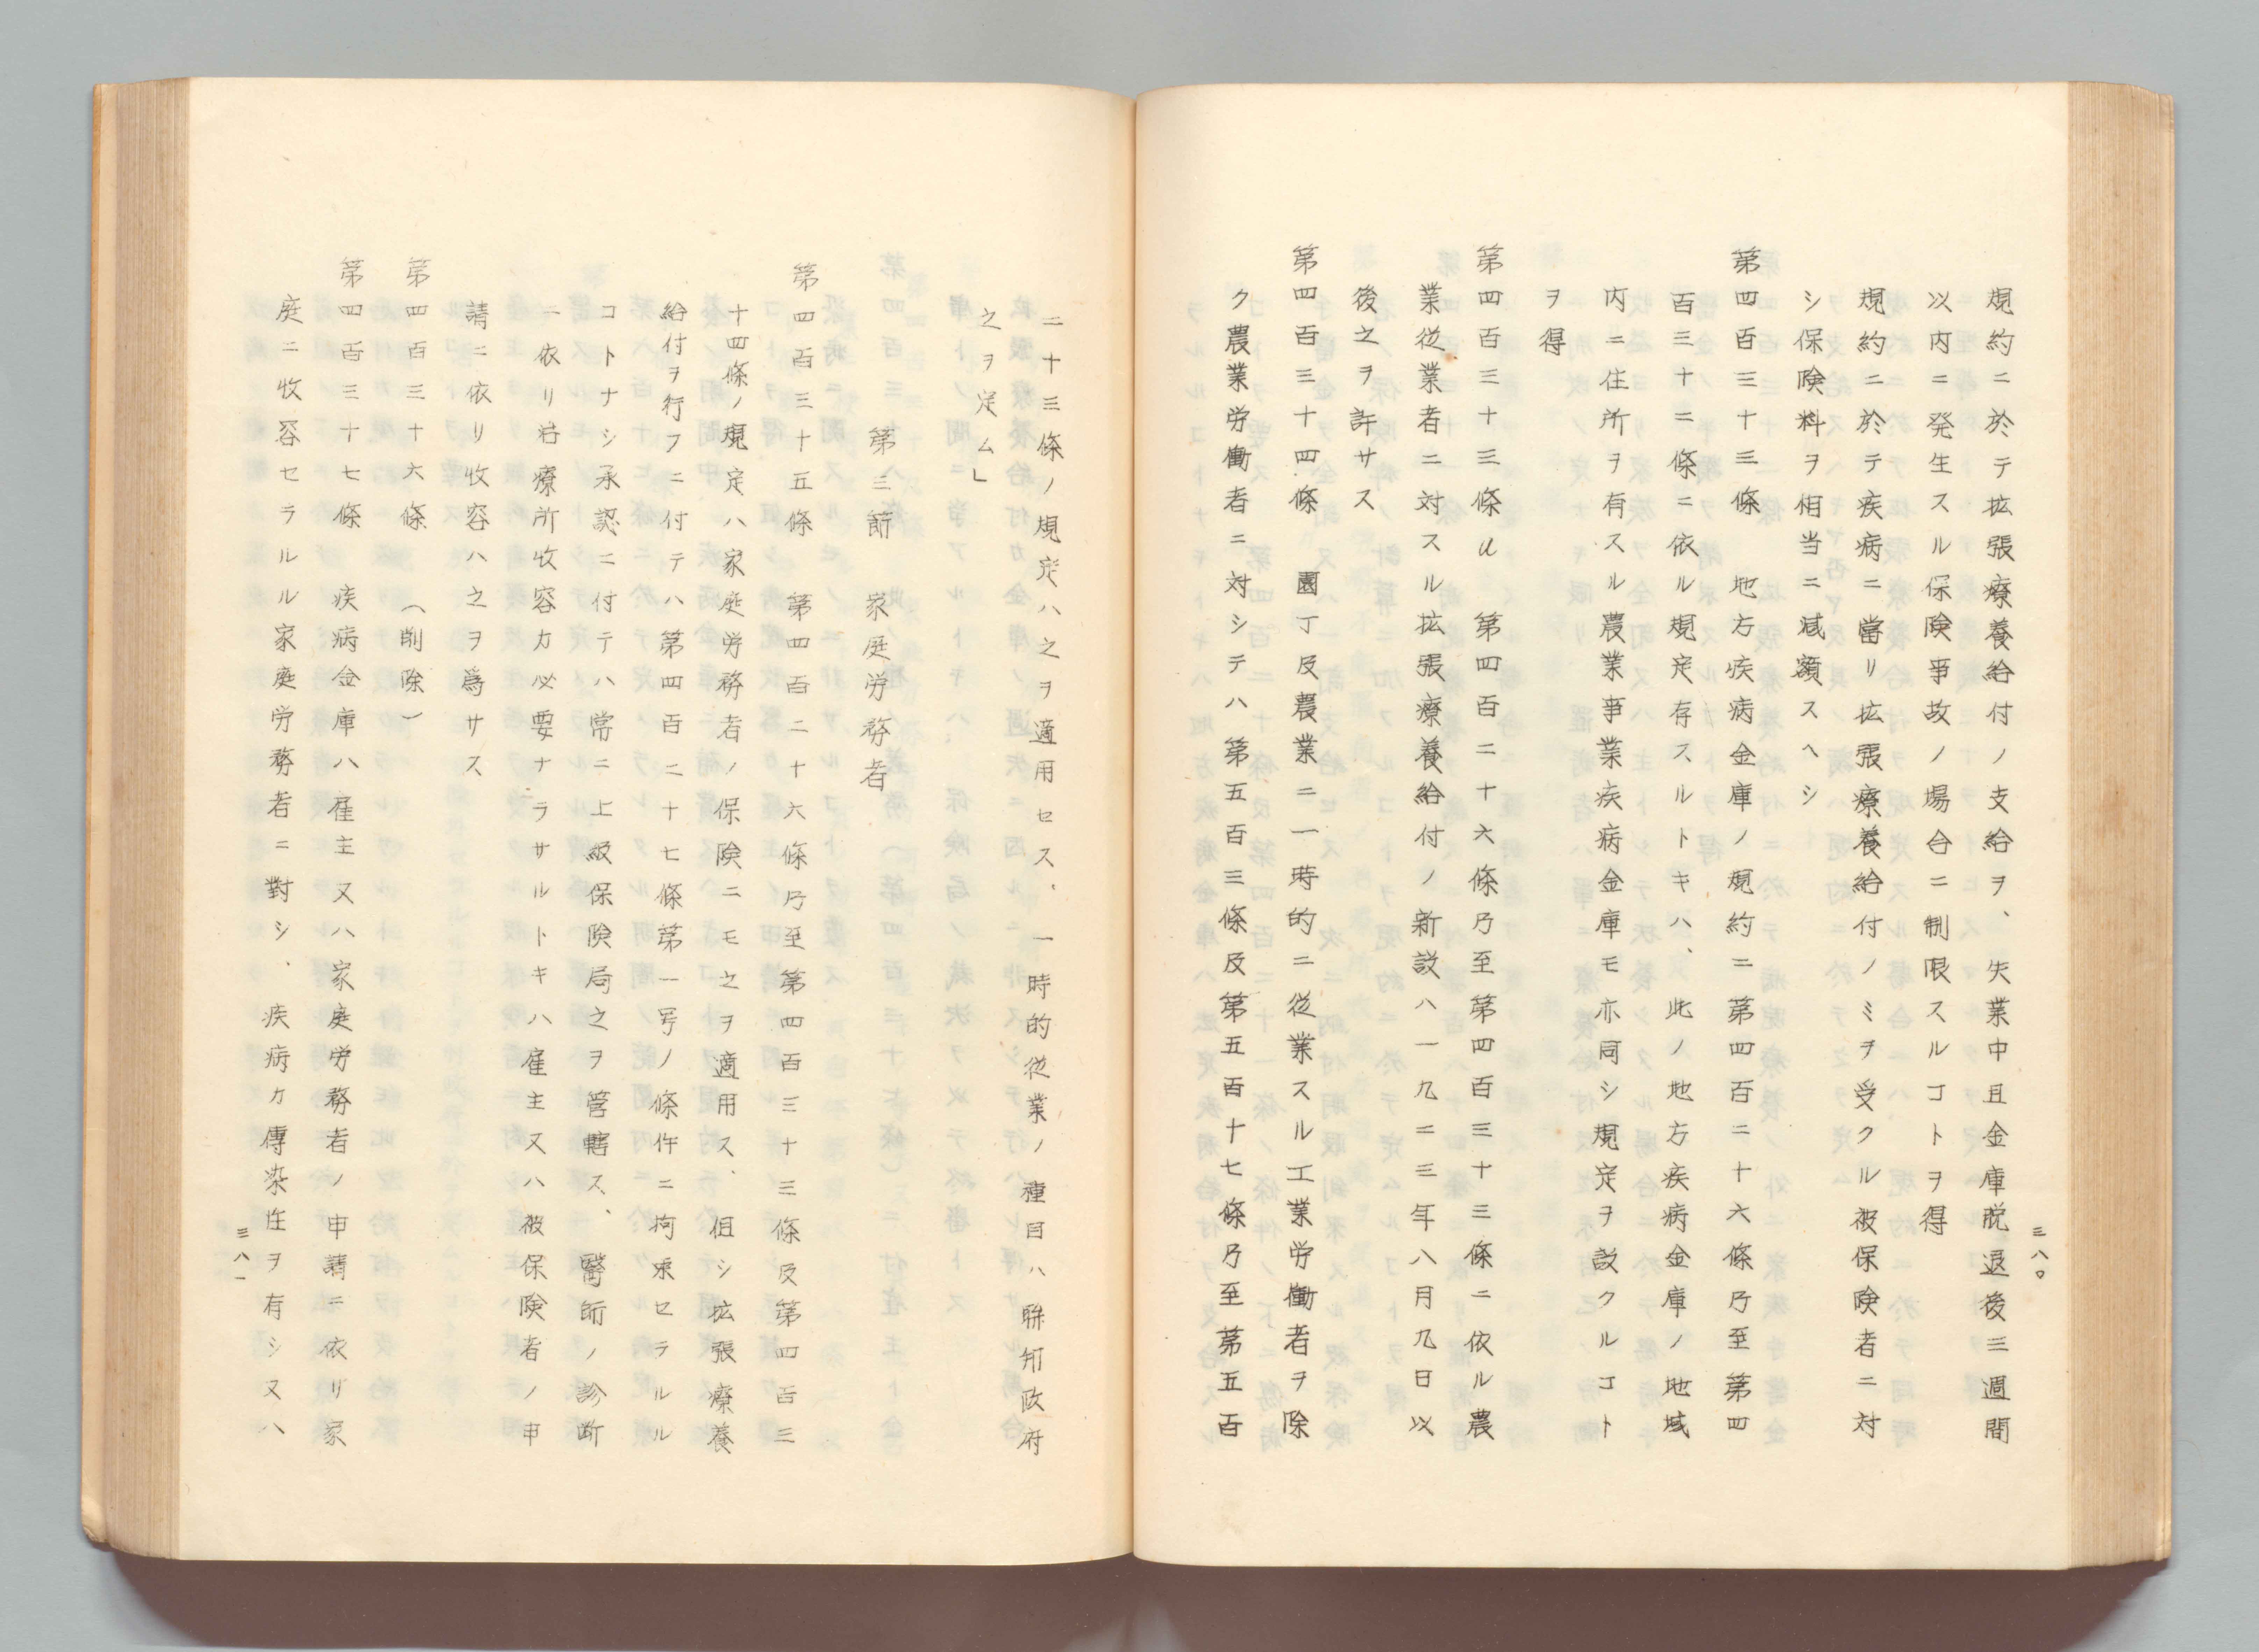 三八〇
規約ニ於テ拡張療養給付ノ支給ヲ、失業中且金庫脱退後三週間
以内ニ発生スル保険事故ノ場合ニ制限スルコトヲ得
規約ニ於テ疾病ニ當リ拡張療養給付ノミヲ受クル被保険者ニ対
シ保険料ヲ相当ニ減額スヘシ
第四百三十三條　地方疾病金庫ノ規約ニ第四百二十六條乃至第四
百三十二條ニ依ル規定存スルトキハ、此ノ地方疾病金庫ノ地域
内ニ住所ヲ有スル農業事業疾病金庫モ亦同シ規定ヲ設クルコト
ヲ得
第四百三十三條a　第四百二十六條乃至第四百三十三條ニ依ル農
業従業者ニ対スル拡張療養給付ノ新設ハ一九二三年八月九日以
後之ヲ許サス
第四百三十四條　園丁及農業ニ一時的ニ従業スル工業労働者ヲ除
ク農業労働者ニ対シテハ第五百三條及第五百十七條乃至第五百
二十三條ノ規定ハ之ヲ適用セス、一時的従業ノ種目ハ聯邦政府
之ヲ定ム」
第三節　家庭労務者
第四百三十五條　第四百二十六條乃至第四百三十三條及第四百三
十四條ノ規定ハ家庭労務者ノ保険ニモ之ヲ適用ス、但シ拡張療養
給付ヲ行フニ付テハ第四百二十七條第一号ノ條件ニ拘束セラルル
コトナシ承認ニ付テハ常ニ上級保険局之ヲ管轄ス、醫師ノ診断
ニ依リ治療所收容カ必要ナラサルトキハ雇主又ハ被保険者ノ申
請ニ依リ收容ハ之ヲ爲サス
第四百三十六條　（削除）
第四百三十七條　疾病金庫ハ雇主又ハ家庭労務者ノ申請ニ依リ家
庭ニ收容セラルル家庭労務者ニ對シ、疾病カ傳染性ヲ有シ又ハ
三八一